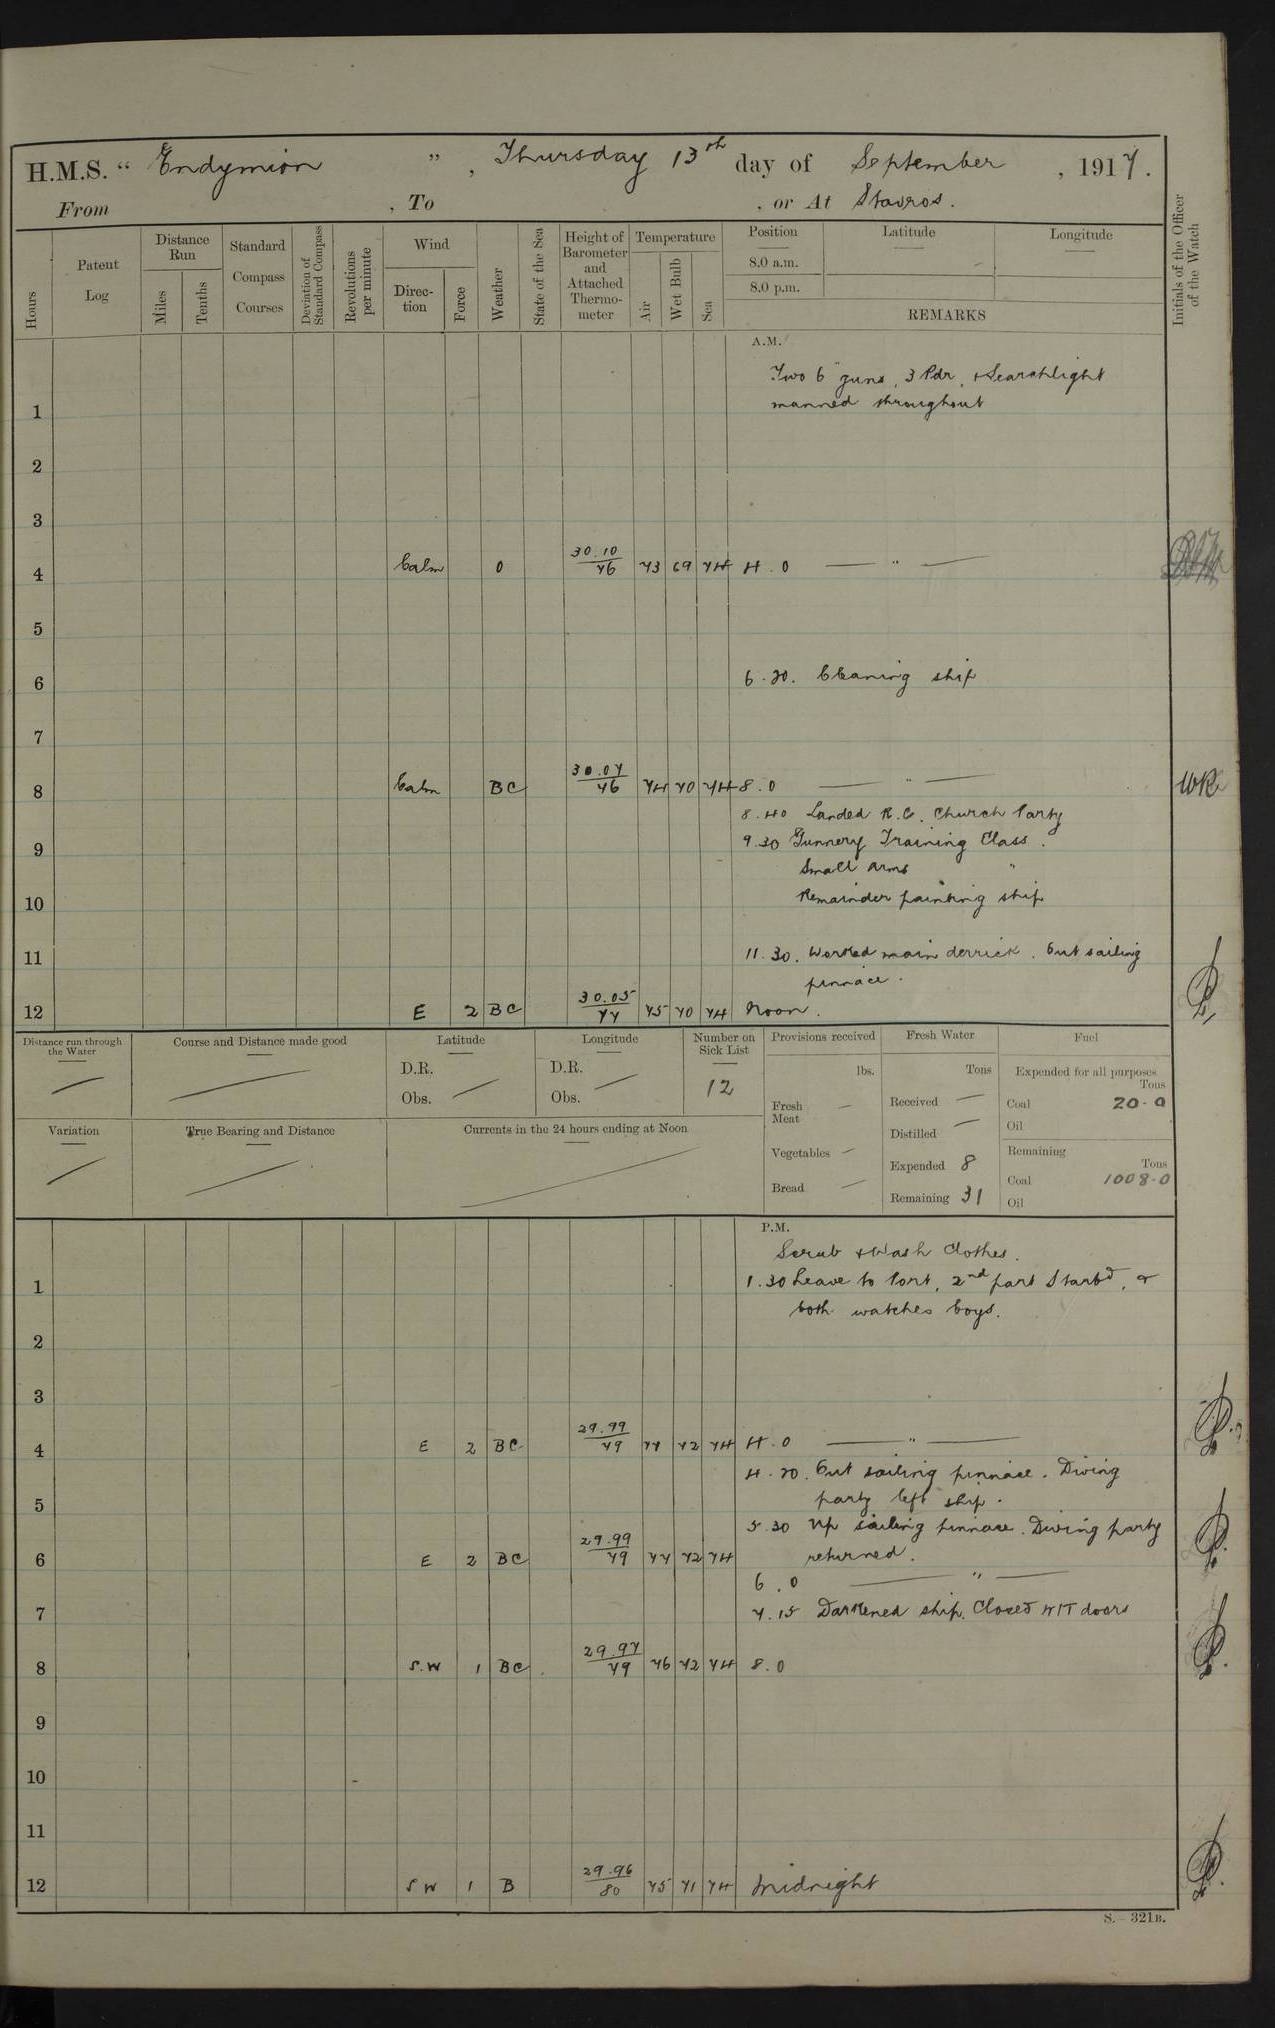 H.M.S. “ Endymion ” , Thursday 13th day of September , 1917.
From , To , or At Stavros.
Hours
Patent Log
Distance Run
Miles
Tenths
Standard Compass Courses
Deviation of Standard Compass
Revolutions per minute
Wind
Direc- tion
Force
Weather
State of the Sea
Height of Barometer and Attached Thermo- meter
Temperature
Air
Wet Bulb
Sea
Position
8.0 a.m.
8.0 p.m.
Latitude
Longitude
REMARKS
Initials of the Officer of the Watch
A.M.
Two 6" guns, 3 Pdr, & Searchlight
1 manned throughout
2
3
4 Calm O 30.10/76 73 69 74 4.0 — " —
5
6 6.20. Cleaning ship
7
8 Calm BC 30.07/76 74 70 74 8.0 — " — WR
8.40 Landed R.C. Church Party
9 9.30 Gunnery Training Class.
Small Arms "
10 Remainder painting ship
11 11.30. Worked main derrick. Out sailing
pinnace.
12 E 2 BC 30.05/77 75 70 74 Noon.
Distance run through the Water —
Course and Distance made good —
Latitude
D.R.
Obs. —
Longitude
D.R.
Obs. —
Number on Sick List
12
Provisions received
lbs.
Fresh Meat —
Vegetables —
Bread —
Fresh Water
Tons
Received —
Distilled —
Expended 8
Remaining 31
Fuel
Expended for all purposes
Tons
Coal 20.0
Oil
Remaining
Tons
Coal 1008.0
Oil
Variation —
True Bearing and Distance —
Currents in the 24 hours ending at Noon —
P.M.
Scrub & Wash Clothes.
1 1.30 Leave to Port, 2nd part Starbd, &
both watches boys.
2
3
4 E 2 BC 29.99/79 77 72 74 4.0 — " —
4.20. Out sailing pinnace. Diving
5 party left ship.
5.30 Up sailing pinnace. Diving party
6 E 2 BC 29.99/79 77 72 74 returned.
6.0 — " —
7 7.15 Darkened ship. Closed W/T doors
8 S.W 1 BC 29.97/79 76 72 74 8.0
9
10
11
12 SW 1 B 29.96/80 75 71 74 Midnight
S.—321B.